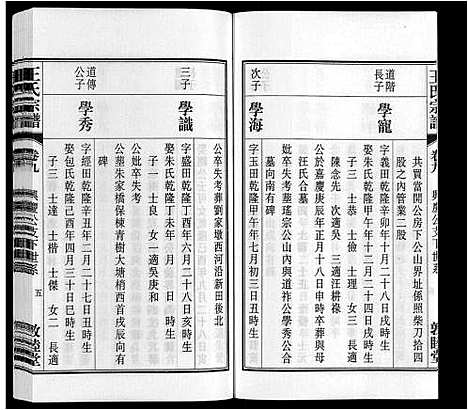 王氏宗譜
卷九
興
公支下世系
敦睦堂
共買當開公房下公山界址係照柴刀拾四
股之內管業三股
道階長子
學寵
字義田乾隆辛卯年十月二十八戌時生
娶陳氏乾隆甲午年十二月二十四戌時生
子三 士恭 士儉 士理 女三 長適
陳念先 次適吳 三適汪耕祿
公於嘉慶庚辰年正月十八日申時卒葬與母
妣卒失考葬瑤宗公山內與道祚公學秀公合
墓向南有碑
次子
學海
汪氏合墓
字玉田乾隆甲午年七月初三日丑時生
公卒失考葬劉家墩西河沿新田後北
三子
學識
字 田乾隆丁酉年六月二十八日亥時生
娶朱氏乾隆丁未年 月 日 時生
子一 士良 女一 適吳庚和
公墓朱家橋保棟青樹大塘梢西首戌辰有
碑
公妣卒失考
道傳公子
學秀
字經田乾隆辛丑年二月十七日丑時生
娶包氏乾隆己酉年四月三十日巳時生
子三 士達 士楷 士傑 女二 長適
王氏宗譜
卷九
興 公支下世系
五
敦睦堂